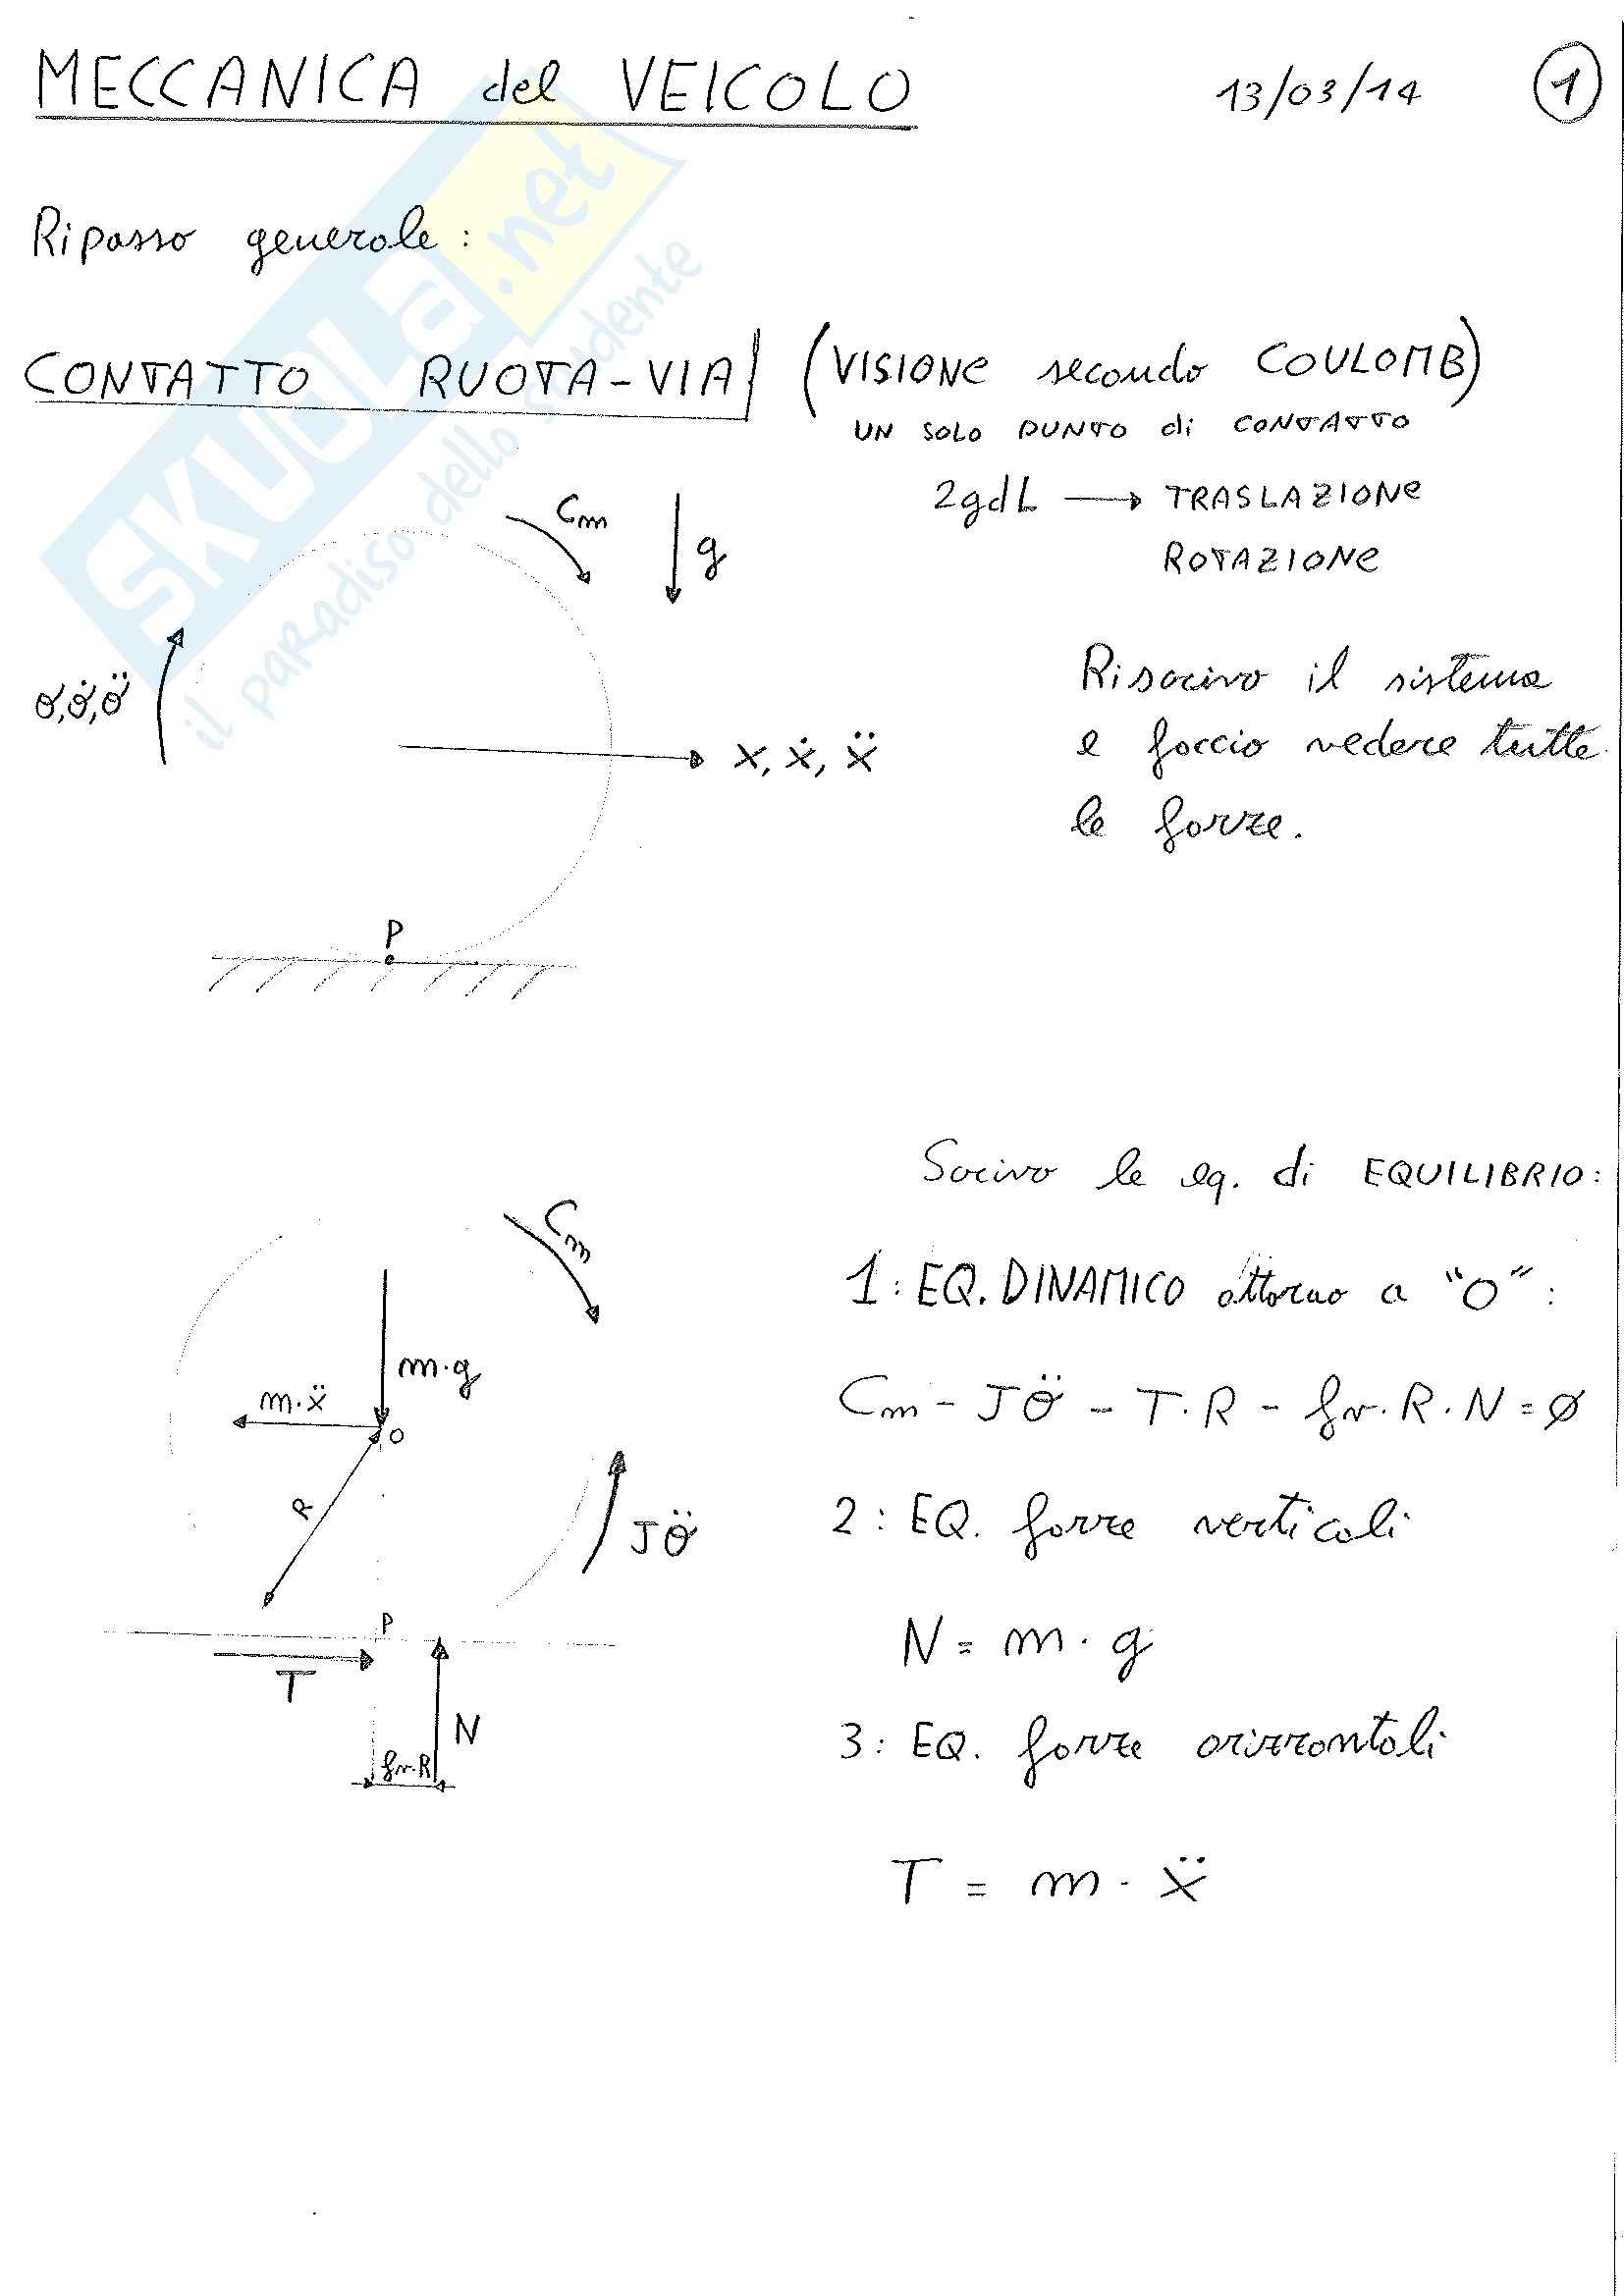 MECCANICA del VEICOLO 13/03/14 1
Ripasso generale:
CONTATTO RUOTA-VIA (VISIONE secondo COULOMB)
UN SOLO PUNTO di CONTATTO
2gdL → TRASLAZIONE
ROTAZIONE
Cm
g
ϑ, ϑ̇, ϑ̈
x, ẋ, ẍ
P
Riscrivo il sistema
e faccio vedere tutte
le forze.
Scrivo le eq. di EQUILIBRIO:
1: EQ. DINAMICO attorno a "O":
Cm - Jϑ̈ - T·R - fv·R·N = ∅
2: EQ. forze verticali
N = m·g
3: EQ. forze orizzontali
T = m·ẍ
Cm
m·g
m·ẍ
O
R
Jϑ̈
P
T
N
fv·R
SKUOLa.net
il paradiso dello studente